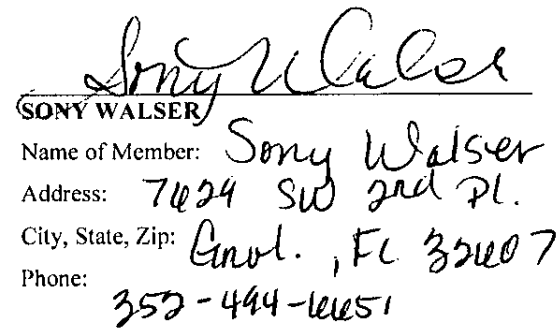 Sony Walser
SONY WALSER
Name of Member: Sony Walser
Address: 7629 SW 2nd Pl.
City, State, Zip: Gnvl. , FL 32607
Phone:
352-494-6651